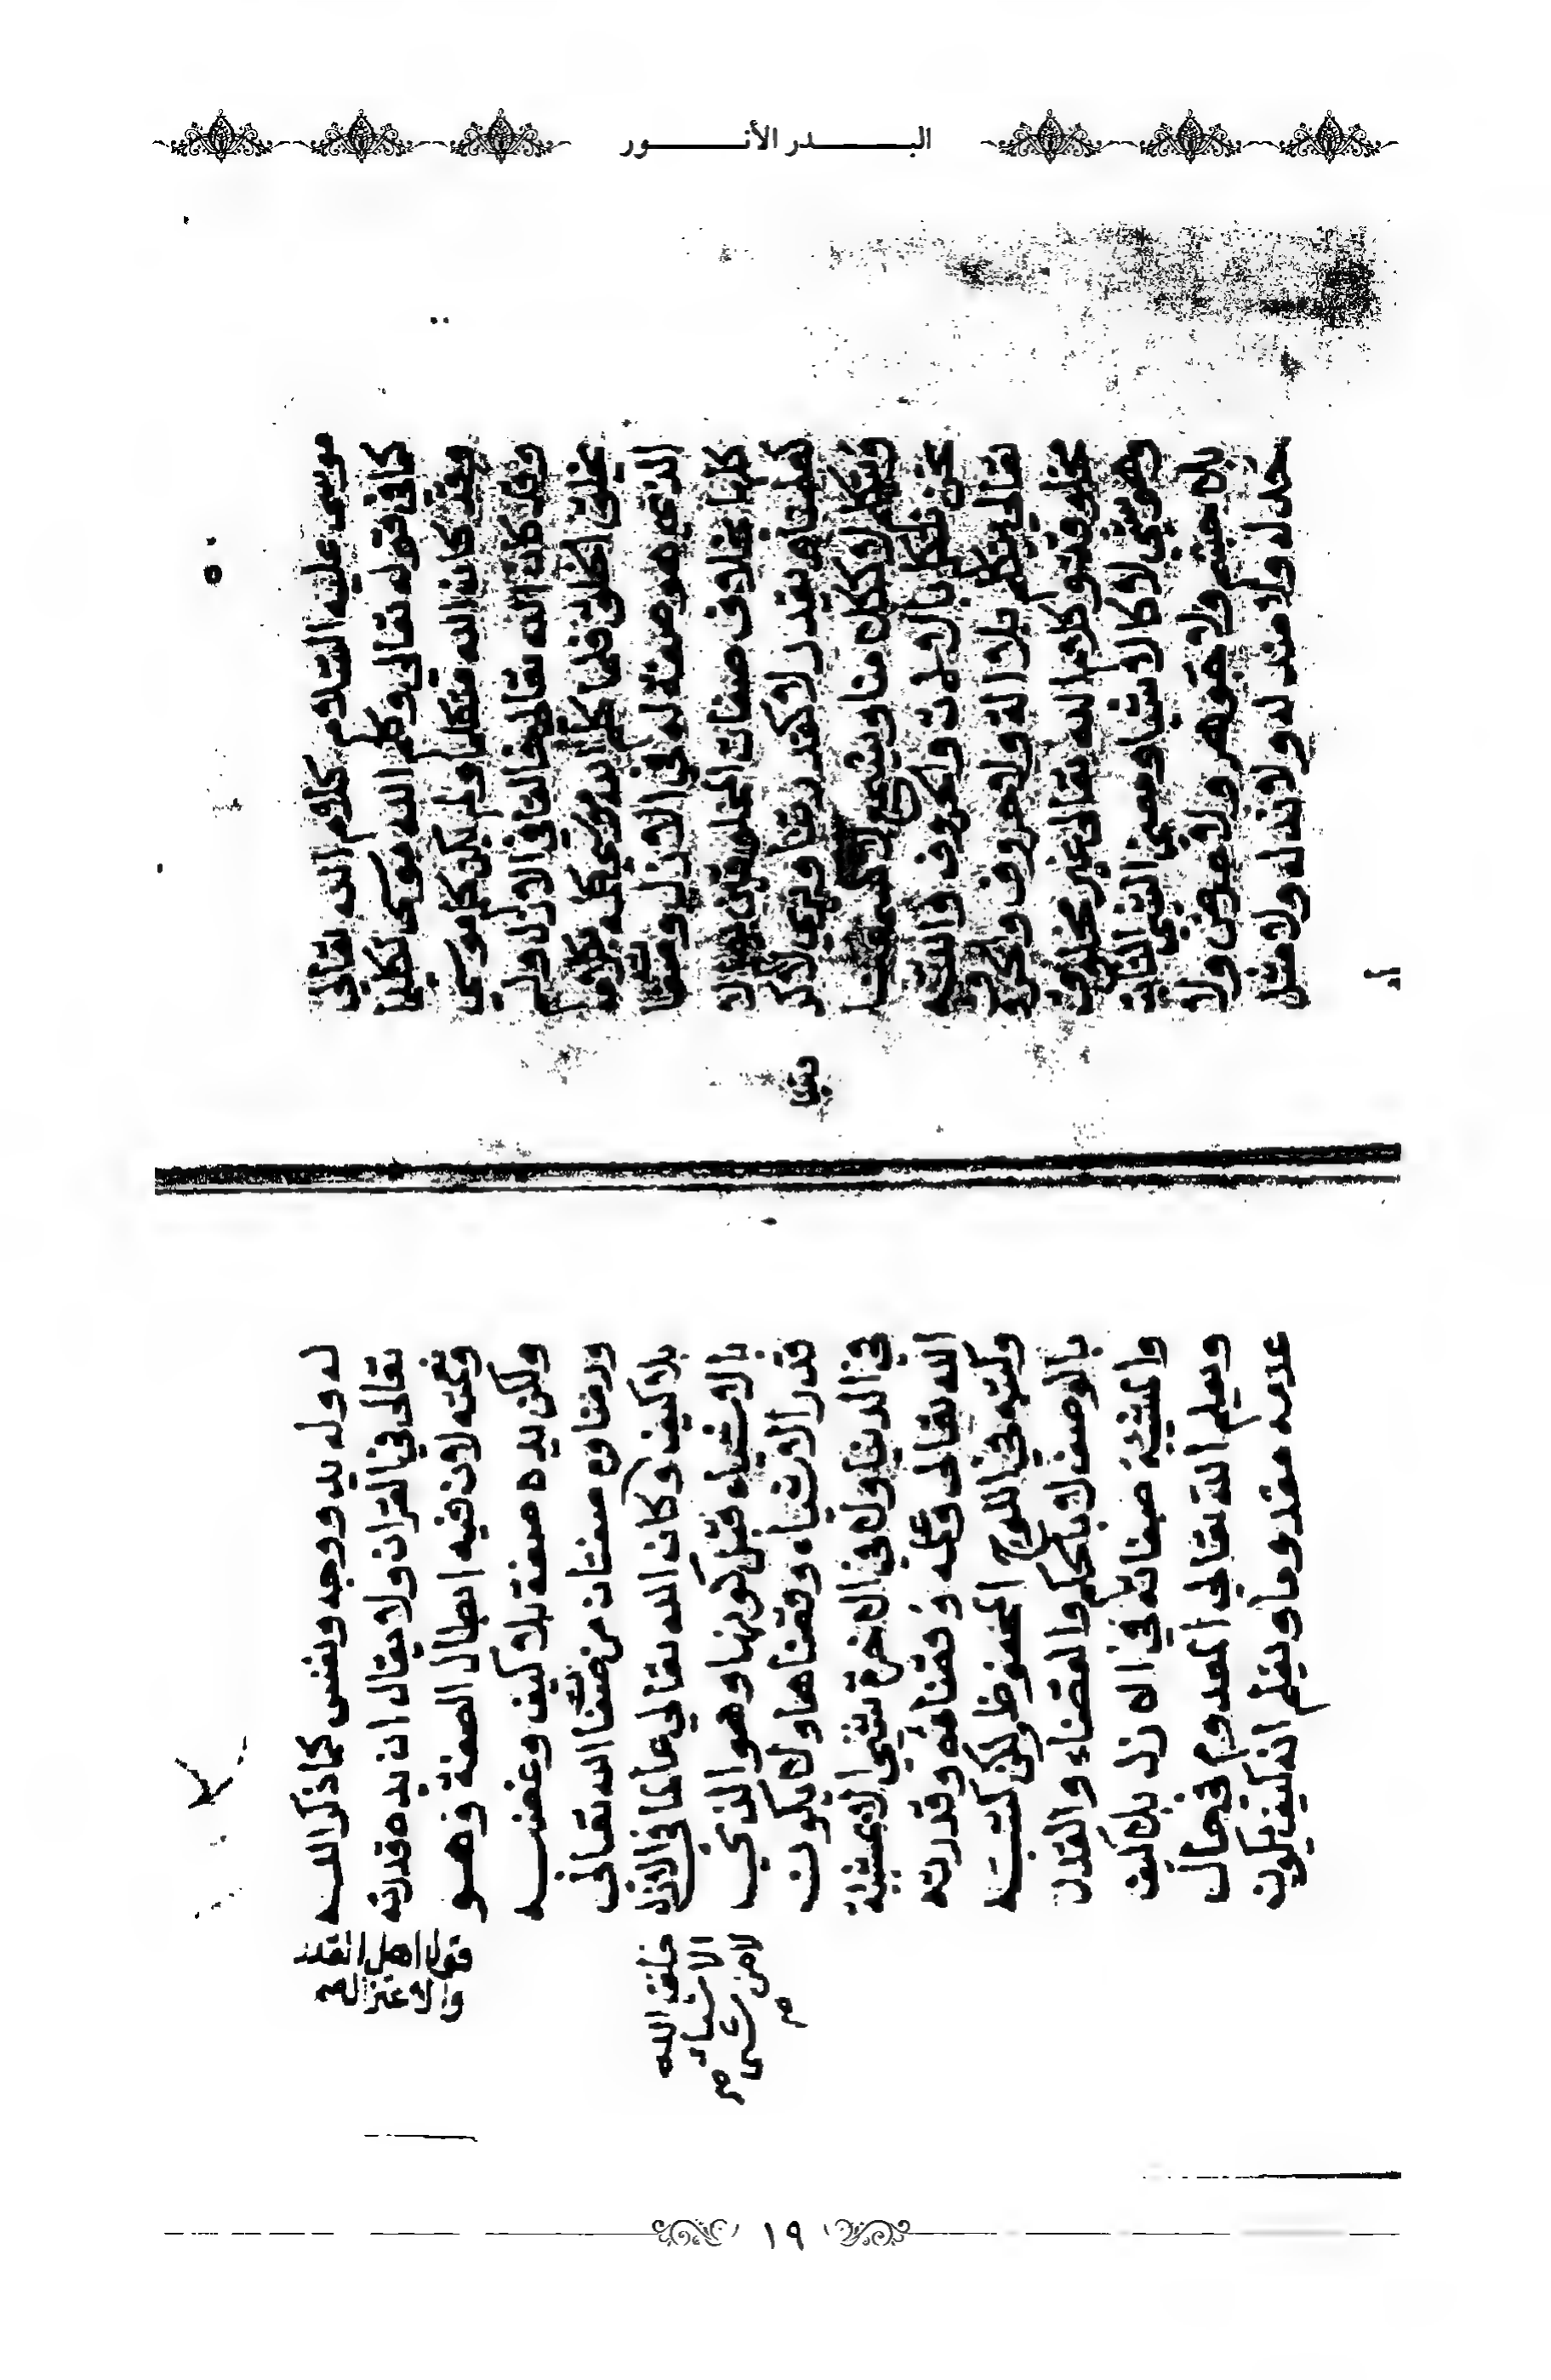 البدر الأنور
موسى عليه السلام كلام الله تعالى
كما في قوله تعالى وكلم الله موسى تكليما
وقد كان الله متكلما ولم يكن كلم موسى
وقد كان الله تعالى خالقا في الازل ولم
يخلق الخلق فلما كلم الله موسى كلمه بكلامه
الذي هو صفة له في الازل وصفاته
كلها بخلاف صفات المخلوقين يعلم لا
كعلمنا و يقدر لا كقدرتنا ويرى لا كر
يتنا
ويتكلم لا ككلامنا ويسمع لا كسمعنا
نحن نتكلم بالالات والحروف والله
تعالى يتكلم بلا الة ولا حروف
مخلوقة وكلام الله تعالى غير مخلوق
وهو شئ لا كالاشيا ومعنى الشئ اثباته
بلا جسم ولا جوهر ولا عرض ولا
حد له ولا ضد له ولا ند له ولا مثل
له وله يد ووجه ونفس كما ذكر الله
تعالى في القران ولا يقال ان يده قدرته
ونعمته لان فيه ابطال الصفة وهو
قول اهل القدر
والاعتزال
ولكن يده صفة بلا كيف وغضبه
ورضاه صفتان من صفات الله تعالى
بلا كيف وكان الله تعالى عالما في الازل
خلق الله
الاشياء
لا من شي
بالاشياء قبل كونها وهو الذي
قدر الاشياء وقضاها ولا يكون
في الدنيا ولا في الاخرة شي الا بمشيئة
الله تعالى وعلمه وقضائه وقدرته
وكتبه في اللوح المحفوظ ولكن كتبه
بالوصف لا بالحكم والقضاء والقدر
والمشيئة صفاته في الازل بلا كيف
ويعلم الله تعالى المعدوم في حال
عدمه معدوما ويعلم انه كيف يكون
١٩